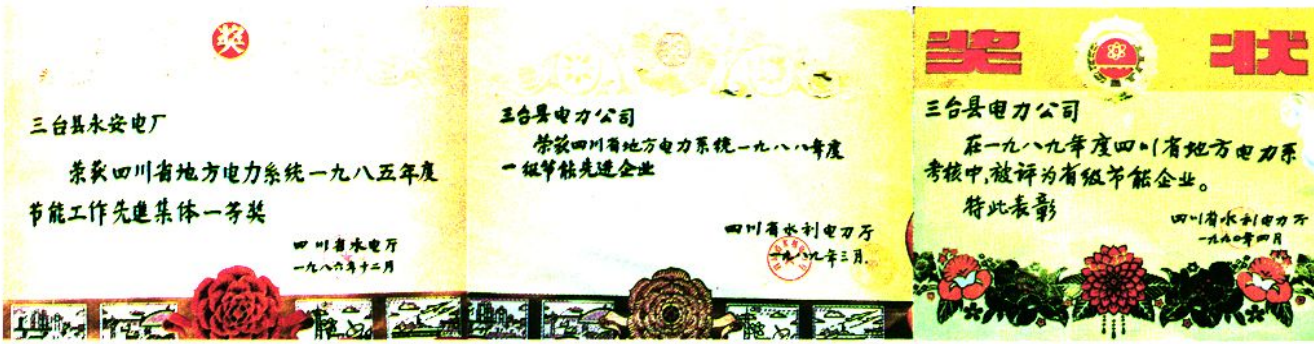 奖
三台县永安电厂
荣获四川省地方电力系统一九八五年度
节能工作先進集体一等奖
四川省水电厅
一九八六年十二月
三台县电力公司
荣获四川省地方电力系统一九八八年度
一级节能先进企业
四川省水利电力厅
一九八九年三月.
奖 状
三台县电力公司
在一九八九年度四川省地方电力系
考核中,被评为省级节能企业。
特此表彰
四川省水利电力厅
一九九〇年四月